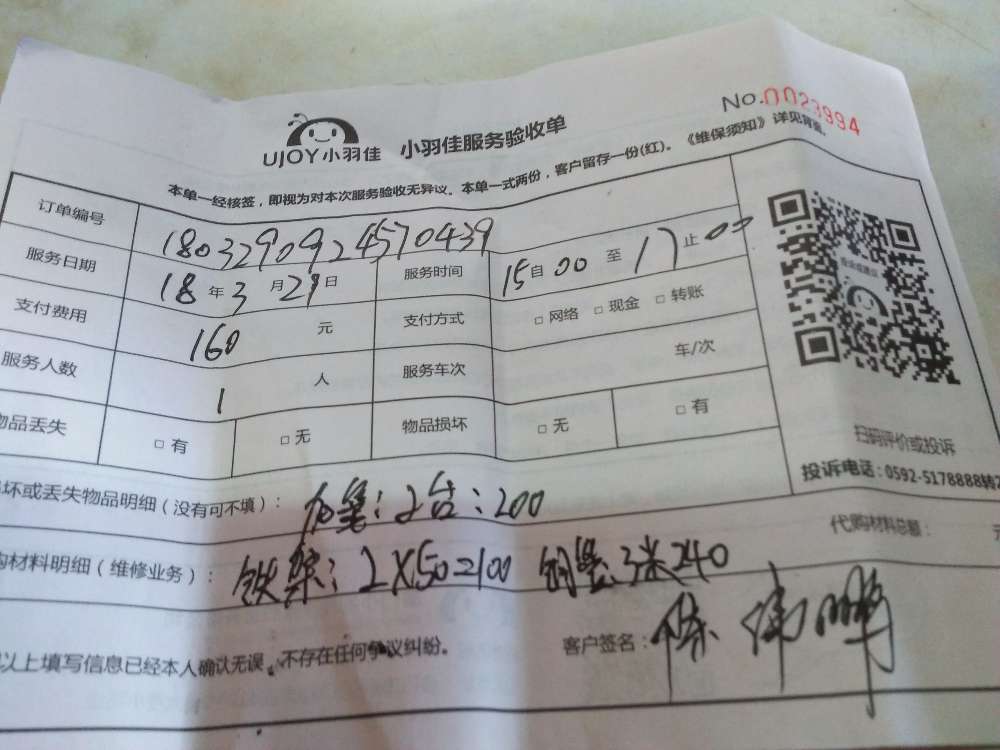 No.0023994
UJOY小羽佳 小羽佳服务验收单
本单一经核签，即视为对本次服务验收无异议。本单一式两份，客户留存一份(红)。《维保须知》详见背面。
订单编号 1803290924570439
服务日期 18年3月29日 服务时间 15自00至17止00
支付费用 160元 支付方式 □网络 □现金 □转账
服务人数 1人 服务车次 车/次
物品丢失 □有 □无 物品损坏 □无 □有
扫码评价或投诉
投诉电话：0592-5178888转2
坏或丢失物品明细（没有可不填）： 2台：200
代购材料总额： 元
购材料明细（维修业务）： 铁架：2X50=100 铜管3米240
以上填写信息已经本人确认无误，不存在任何争议纠纷。
客户签名：陈